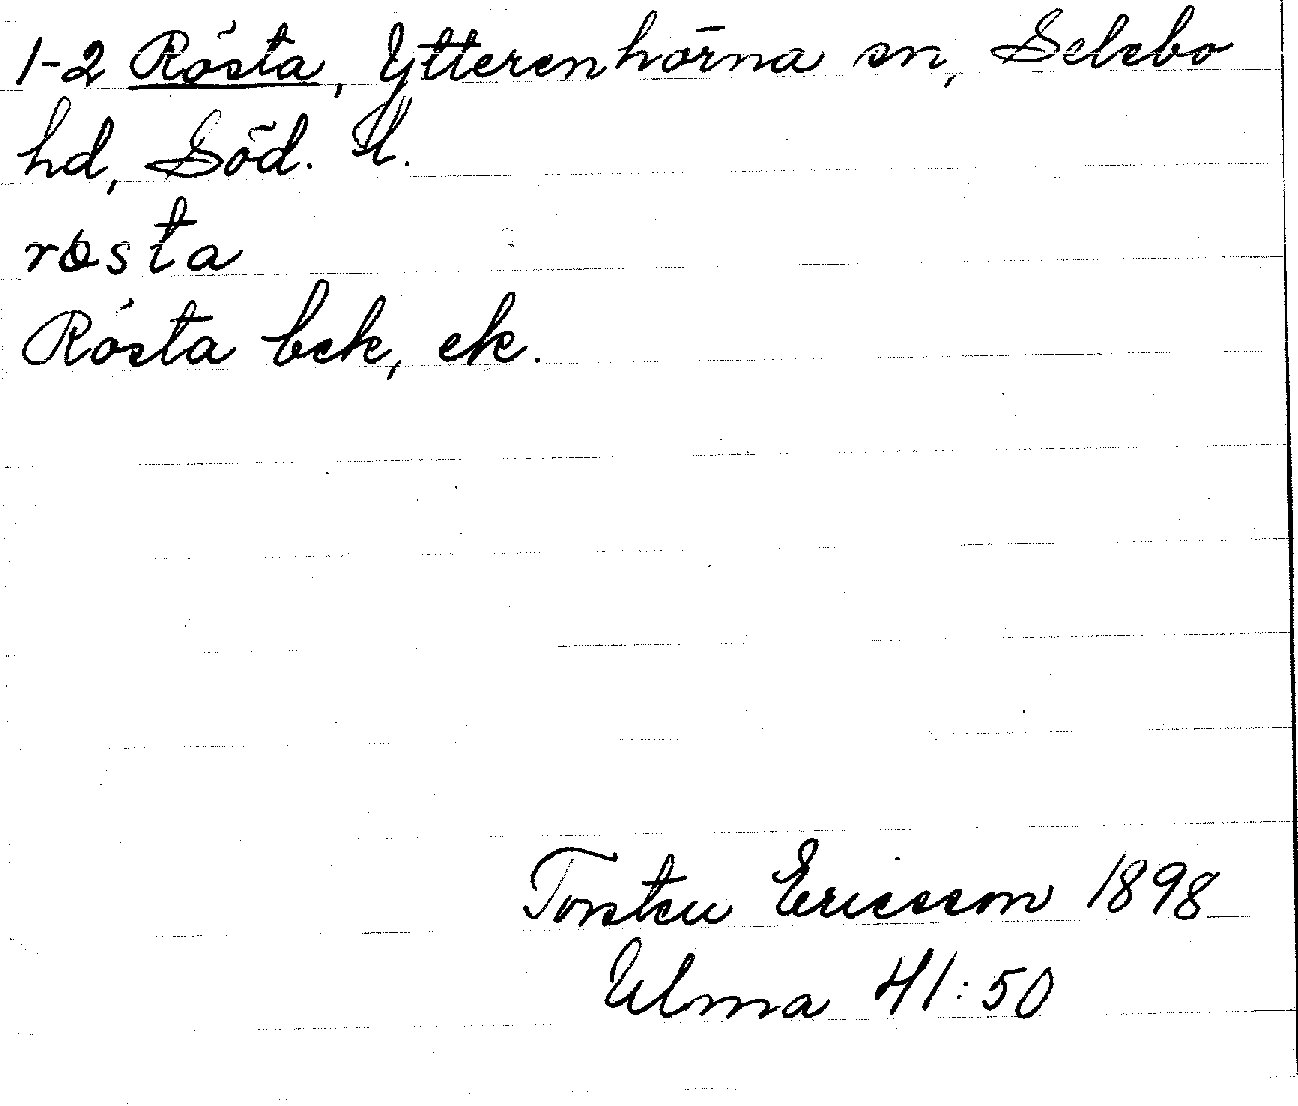 1-2 Rösta, Ytterenhörna sn, Selebo
hd, Söd. U.
rösta
Rösta bek, ek.
Torsten Ericsson 1898
Ulma 41:50